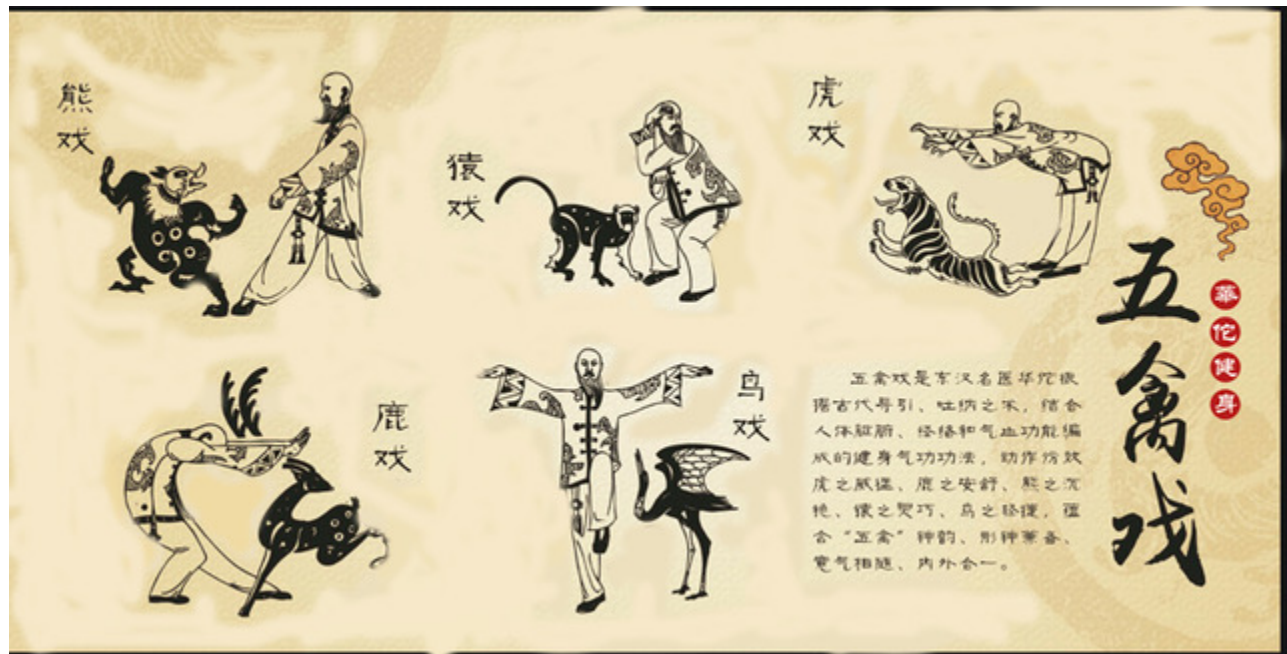 五禽戏
華佗健身
熊戏
猿戏
虎戏
鹿戏
鸟戏
五禽戏是东汉名医华佗根
据古代导引、吐纳之术，结合
人体脏腑、经络和气血功能编
成的健身气功功法，动作仿效
虎之威猛、鹿之安舒、熊之沉
稳、猿之灵巧、鸟之轻捷，蕴
含“五禽”神韵、形神兼备、
意气相随、内外合一。